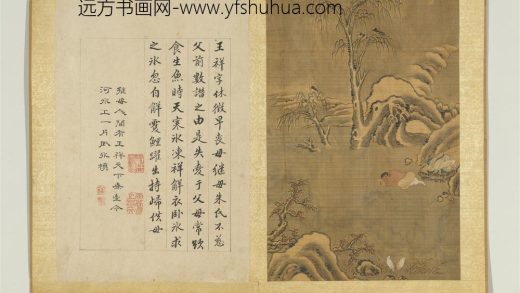 远方书画网-www.yfshuhua.com
王祥字休徵早喪母繼母朱氏不慈
父前數譖之由是失愛于父母常欲
食生魚時天寒冰凍祥解衣卧冰求
之冰忽自解雙鯉躍出持歸供母
繼母人間有王祥天下無至今
河水上一片卧冰模